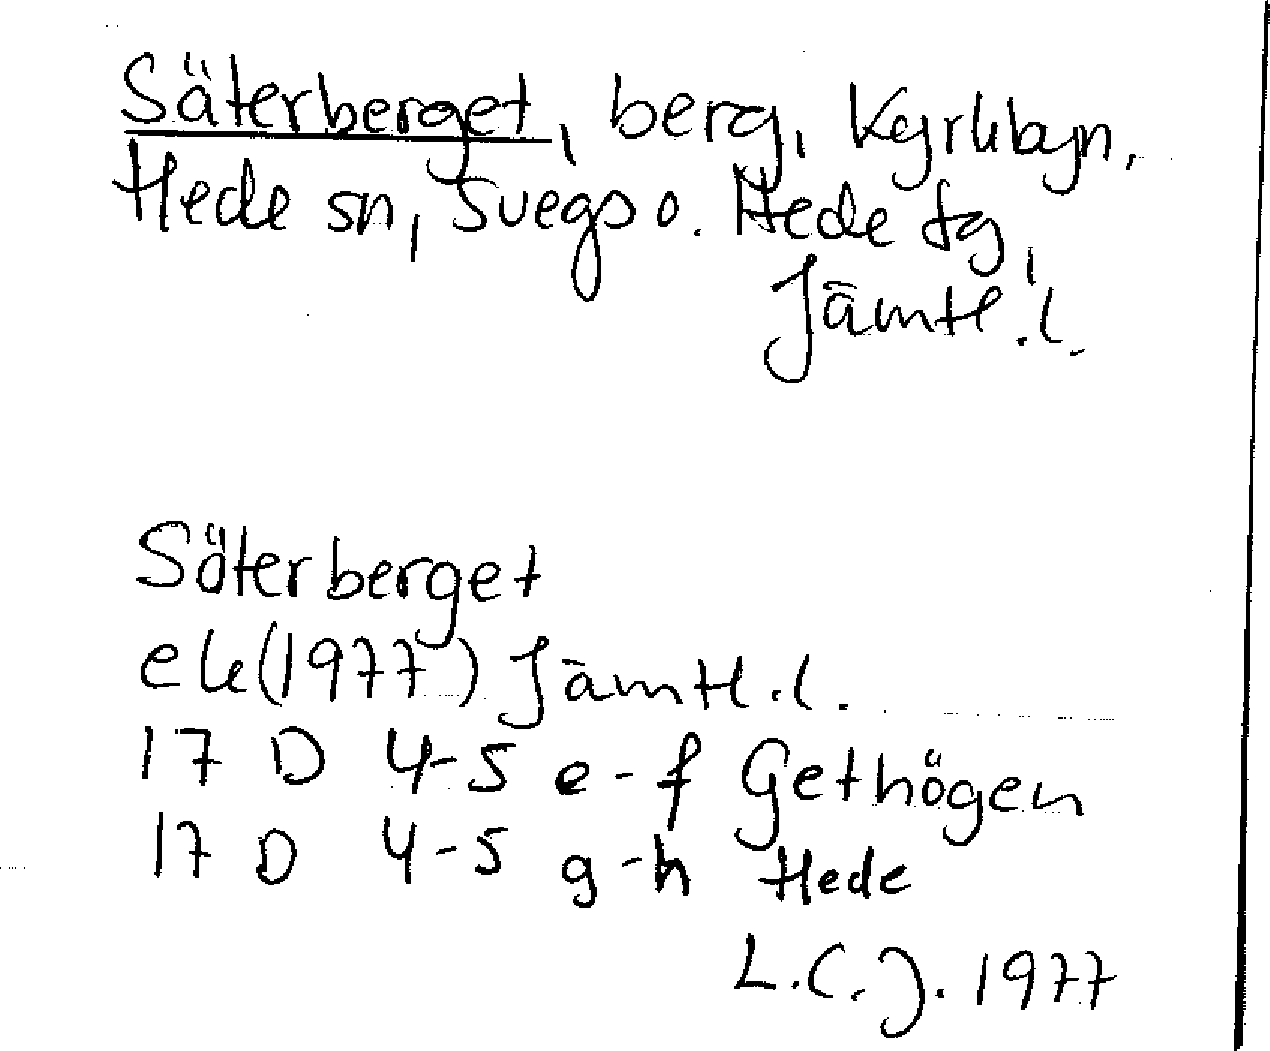 Säterberget, berg, Kyrkbyn,
Hede sn, Svegs o. Hede tg,
Jämtl.l.
Säterberget
ek(1977) Jämtl.l.
17 D 4-5 e-f Gethögen
17 D 4-5 g-h Hede
L.C.J. 1977